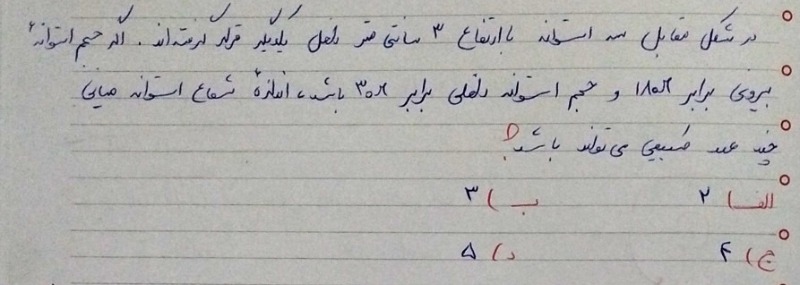 در شکل مقابل سه استوانه با ارتفاع ۳ سانتی متر داخل یکدیگر قرار گرفته‌اند. اگر حجم استوانهٔ
بیرونی برابر ۱۸۰π و حجم استوانه داخلی برابر ۳۰π باشد، اندازهٔ شعاع استوانه میانی
چند عدد طبیعی می تواند باشد؟
الف) ۲ ب) ۳
ج) ۴ د) ۵